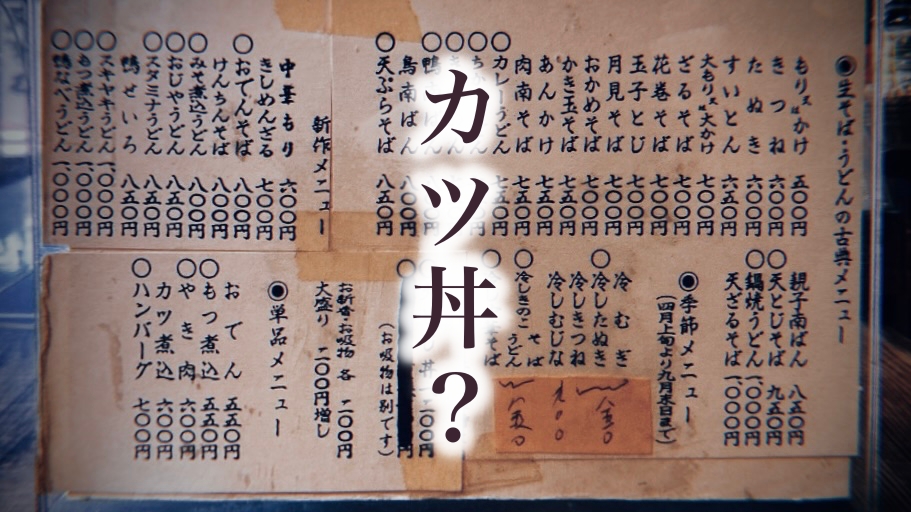 カツ丼？
◉生そば・うどんの古典メニュー
もり又はかけ 五〇〇円
きつね 六〇〇円
たぬき 六〇〇円
すいとん 六五〇円
大もり又は大かけ 七〇〇円
ざるそば 七〇〇円
花巻そば 七〇〇円
玉子とじ 七〇〇円
月見そば 七〇〇円
おかめそば 七〇〇円
かき玉そば 七〇〇円
あんかけ 七〇〇円
肉南そば 七五〇円
カレーうどん 七五〇円
鳥南ばん
天ぷらそば 八五〇円
新作メニュー
中華もり 六〇〇円
きしめんざる 七〇〇円
おでんそば 七〇〇円
けんちんそば 八〇〇円
みそ煮込うどん 八〇〇円
おじやうどん 八〇〇円
スタミナうどん 八五〇円
鴨せいろ 八五〇円
スキヤキうどん 一、〇〇〇円
もつ煮込うどん 一、〇〇〇円
鴨なべうどん 一、〇〇〇円
親子南ばん 八五〇円
天とじそば 九五〇円
鍋焼うどん 一、〇〇〇円
天ざるそば 一、〇〇〇円
◉季節メニュー
（四月上旬より九月末日まで）
冷むぎ
冷したぬき
冷しきつね
冷しむじな
冷しきのこ
そば
うどん
（お吸物は別です）
お新香・お吸物 各 二〇〇円
大盛り 二〇〇円増し
◉単品メニュー
おでん 五五〇円
もつ煮込 五五〇円
やき肉 六〇〇円
カツ煮込 六〇〇円
ハンバーグ 七〇〇円